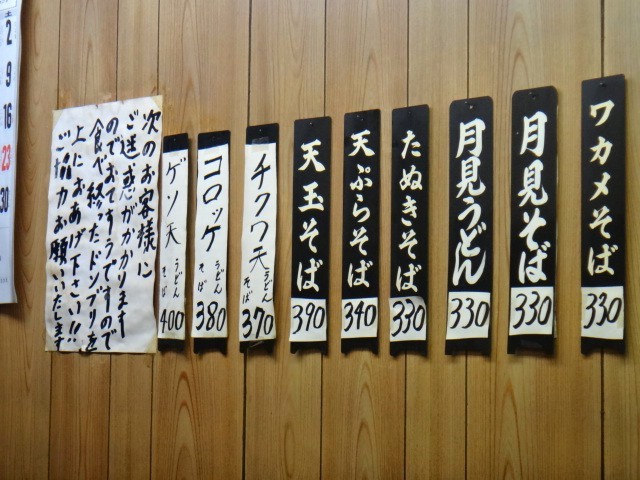 ワカメそば
330
月見そば
330
月見うどん
330
たぬきそば
330
天ぷらそば
340
天玉そば
390
チクワ天 うどん そば
370
コロッケ うどん そば
380
ゲソ天 うどん そば
400
次のお客様に
ご迷惑がかかります
のでおてすうですので
食べ終ったドンブリを
上におあげ下さい!!
ご協力お願いいたします
土
2
9
16
23
30